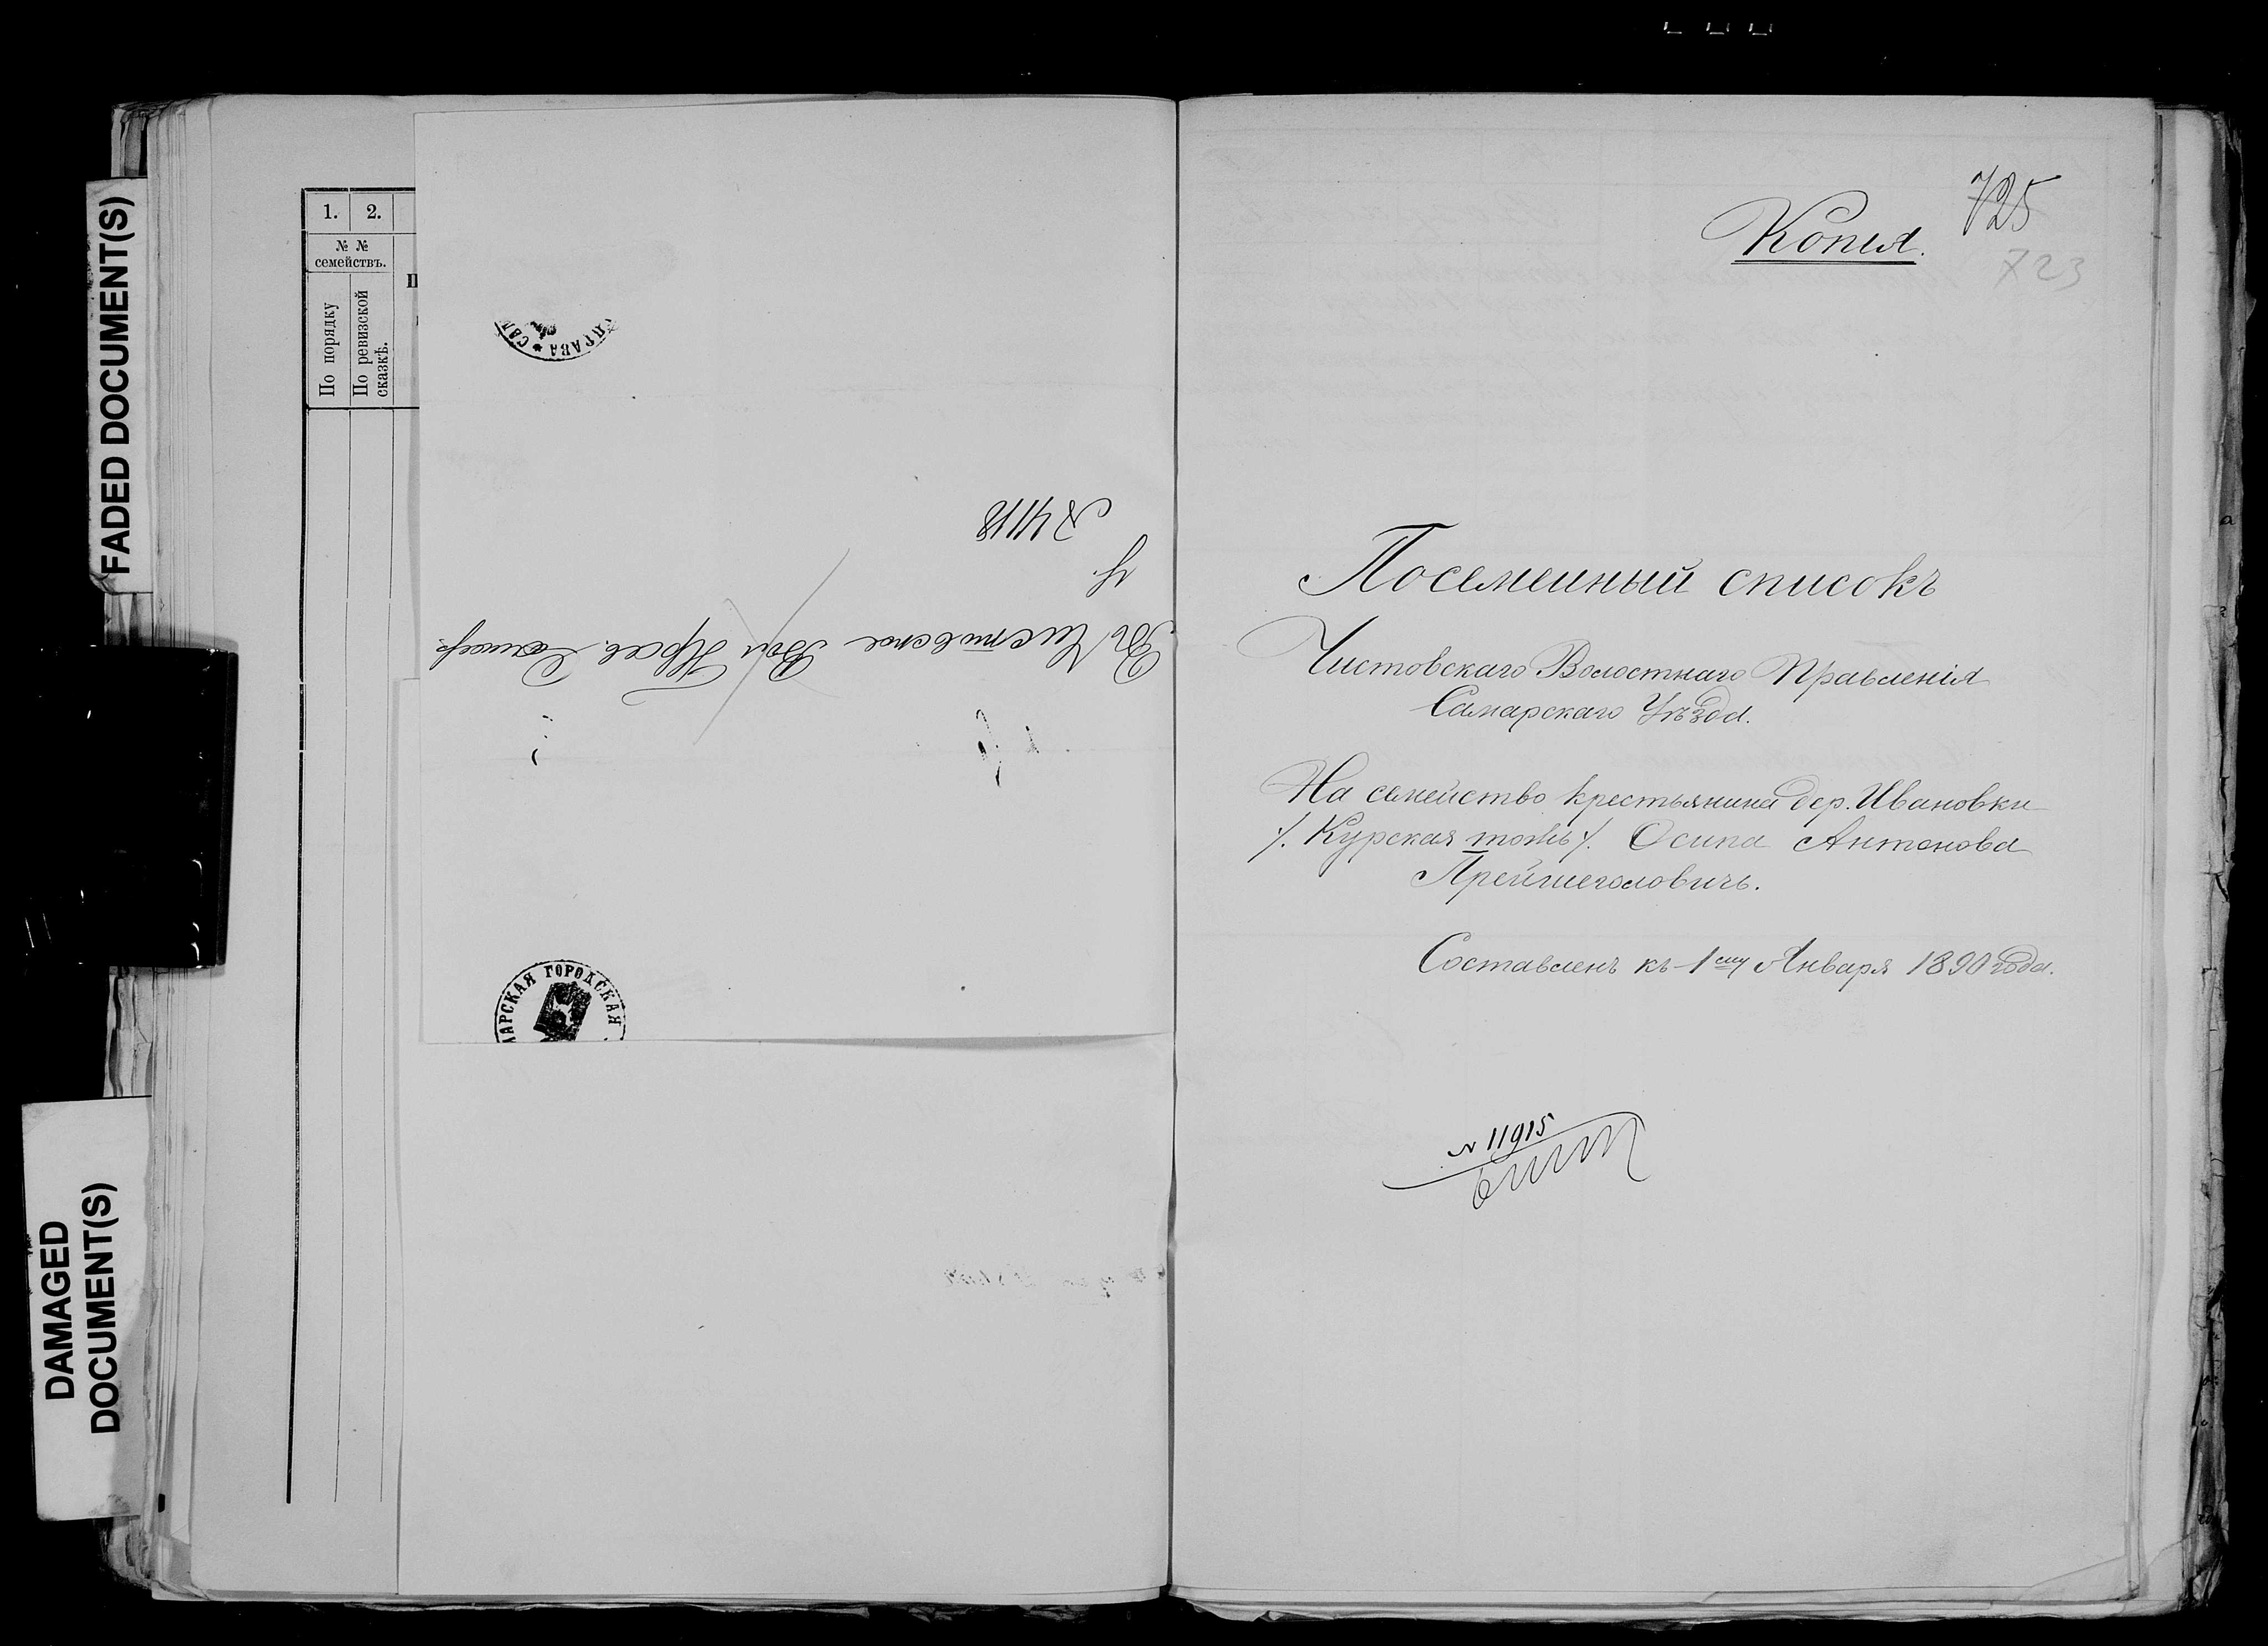 FADED DOCUMENT(S)
DAMAGED
DOCUMENT(S)
1. 2.
№ №
семействъ.
По порядку
По ревизской
сказкѣ.
УПРАВА * САМ
№ 4118
Въ Чистовское Вол. Прав. Самар.
у.
АРСКАЯ ГОРОДСКАЯ
725
Копія.
723
Посемейный списокъ
Чистовскаго Волостнаго Правленія
Самарскаго Уѣзда.
На семейство крестьянина дер. Ивановки
/. Курская тожъ /. Осипа Антонова
Составленъ къ 1ому Января 1890 года.
№ 11915